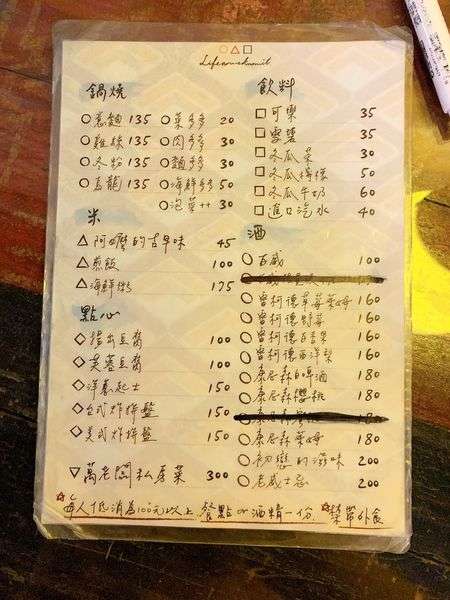 鍋燒
○意麵 135
○雞絲 135
○冬粉 135
○烏龍 135
○菜多多 20
○肉多多 30
○麵多多 30
○海鮮多多 50
○泡菜++ 30
米
△阿嬤的古早味 45
△煎飯 100
△海鮮粥 175
點心
◇揚出豆腐 100
◇芙蓉豆腐 100
◇洋蔥起士 150
◇台式炸拼盤 150
◇美式炸拼盤 150
▽萬老闆私房菜 300
飲料
□可樂 35
□雪碧 35
□冬瓜茶 30
□冬瓜檸檬 50
□冬瓜牛奶 60
□進口汽水 40
酒
○百威 100
○曾柯德草莓萊姆 160
○曾柯德野莓 160
○曾柯德百香果 160
○曾柯德西洋梨 160
○康尼森白啤酒 180
○康尼森櫻桃 180
180
○康尼森萊姆 180
○初戀的滋味 200
○老威士忌 200
☆每人低消為100元以上餐點or酒精一份. ☆禁帶外食